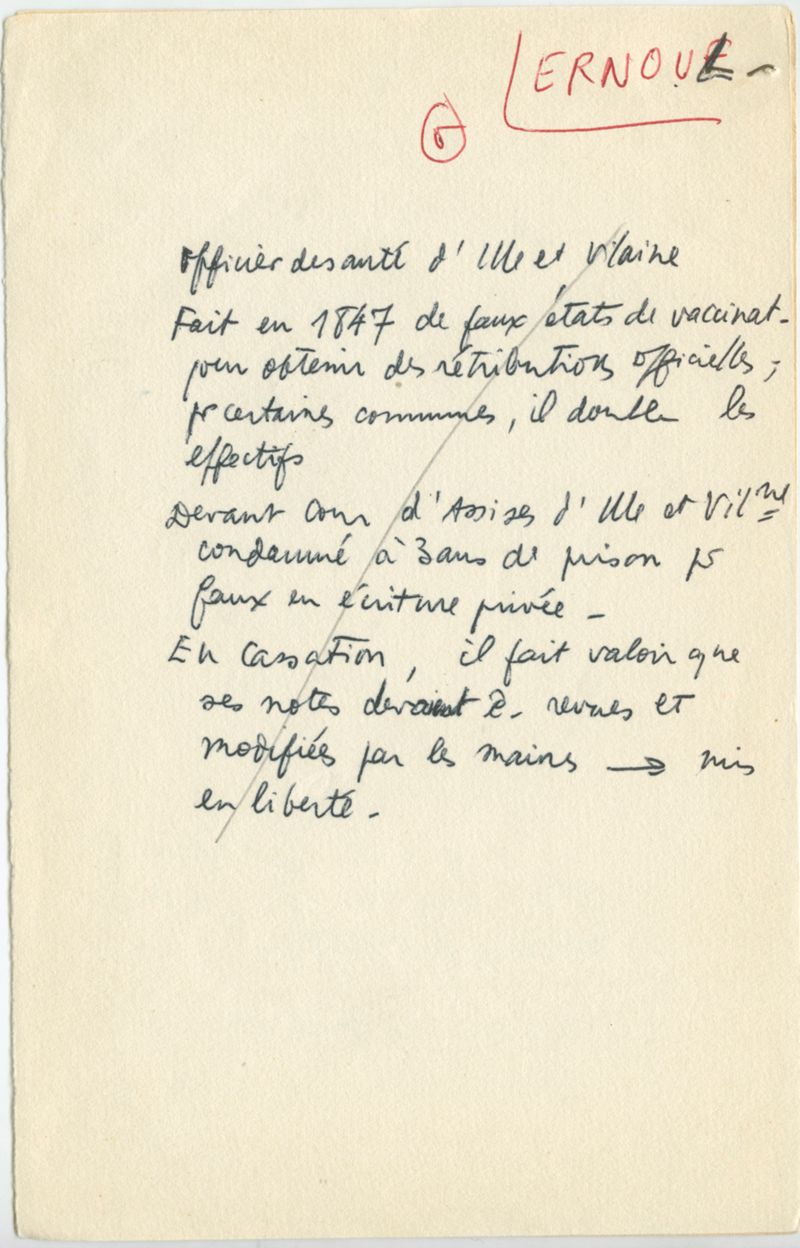 LERNOUL -
6
officier de santé d'Ille et Vilaine
Fait en 1847 de faux états de vaccinat-
pour obtenir des rétributions officielles ;
pr certaines communes, il double les
effectifs
Devant Cour d'Assises d'Ille et Vilne
condamné à 3 ans de prison pr
faux en écriture privée -
En Cassation, il fait valoir que
ses notes devaient ê. revues et
modifiées par les maires → mis
en liberté -